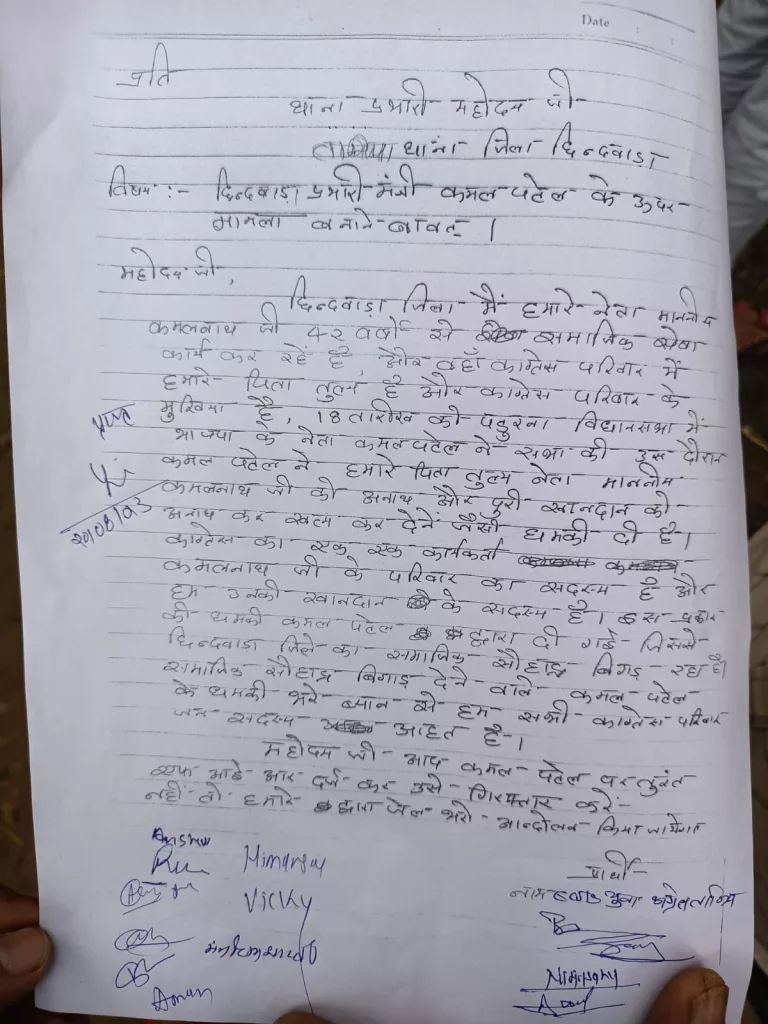 Date : :
प्रति
थाना प्रभारी महोदय जी
तामिया थाना जिला छिन्दवाड़ा
विषय :- छिन्दवाड़ा प्रभारी मंत्री कमल पटेल के ऊपर
मामला बनाने बावत् ।
महोदय जी,
छिन्दवाड़ा जिला में हमारे नेता माननीय
कमलनाथ जी 42 वर्षो से समाजिक सेवा
कार्य कर रहें है, और वहाँ कांग्रेस परिवार में
हमारे पिता तुल्य है और कांग्रेस परिवार के
मुखिया है, 18 तारीख को पंढुरना विधानसभा में
भाजपा के नेता कमल पटेल ने सभा की उस दौरान
कमल पटेल ने हमारे पिता तुल्य नेता माननीय
कमलनाथ जी को अनाथ और पुरी खानदान को
अनाथ कर खत्म कर देनें जैसी धमकी दी है।
कांग्रेस का एक एक कार्यकर्ता
कमलनाथ जी के परिवार का सदस्य है और
हम उनकी खानदान के सदस्य है। इस प्रकार
की धमकी कमल पटेल द्वारा दी गई जिससे
छिन्दवाड़ा जिले का समाजिक सौहाद्र बिगड़ रहा है।
समाजिक सौहाद्र बिगाड़ देने वाले कमल पटेल
के धमकी भरे ब्यान से हम सभी कांग्रेस परिवार
जन सदस्य आहत है।
महोदय जी आप कमल पटेल पर तुरंत
एफ आई आर दर्ज कर उसे गिरफ्तार करे
नहीं तो हमारे द्वारा जेल भरो आन्दोलन किया जायेगा
20/08/23
Himanshu
Vicky
Aman
प्रार्थी
नाम युवा कांग्रेस तामिया